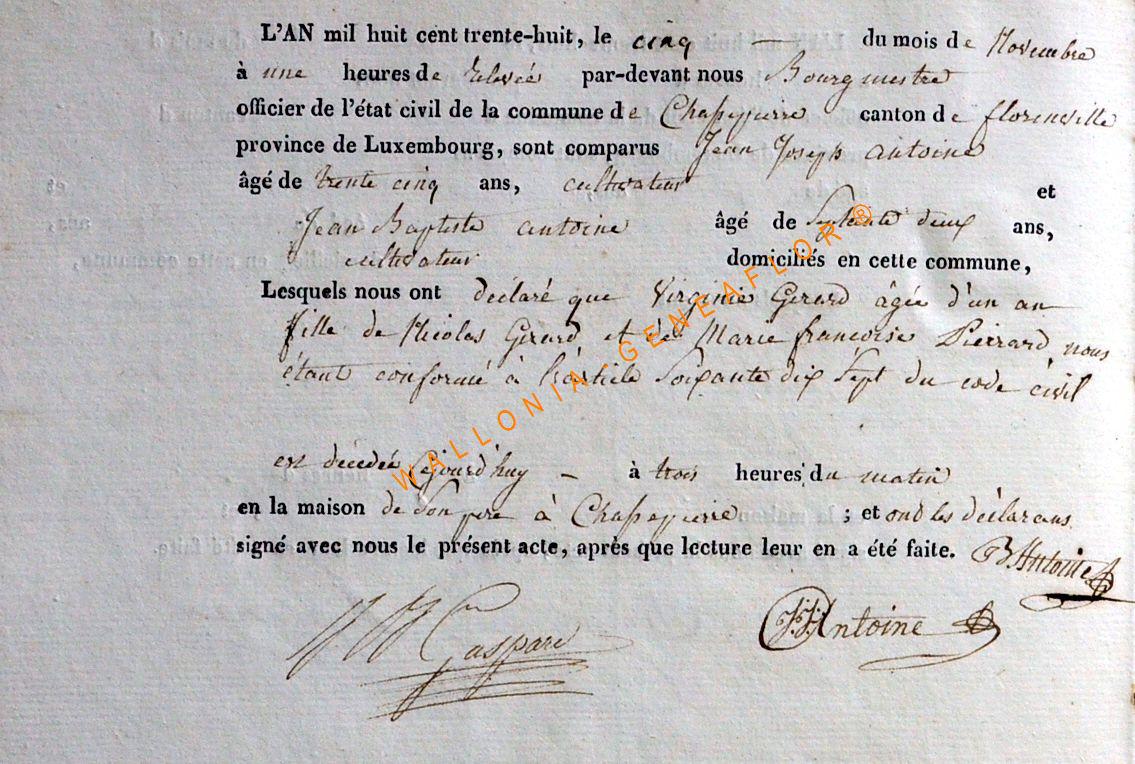 L'AN mil huit cent trente-huit, le cinq — du mois de Novembre
à une heures de relevée par-devant nous Bourgmestre
officier de l'état civil de la commune de Chassepierre canton de florenville
province de Luxembourg, sont comparus Jean Joseph antoine
âgé de trente cinq ans, cultivateur et
Jean Baptiste antoine âgé de septante deux ans,
cultivateur domiciliés en cette commune,
Lesquels nous ont déclaré que Virginie Gerard âgée d'un an
fille de Nicolas Gérard et de Marie francoise Pierrard, nous
étant conformé à l'article Soixante dix Sept du code civil
est décédée cejourd'huy – à trois heures du matin
en la maison de Son pere à Chassepierre ; et ond les déclarans
signé avec nous le présent acte, après que lecture leur en a été faite. B Antoine
JJ Antoine
Gaspard
WALLONIA-GENEAFLOR®